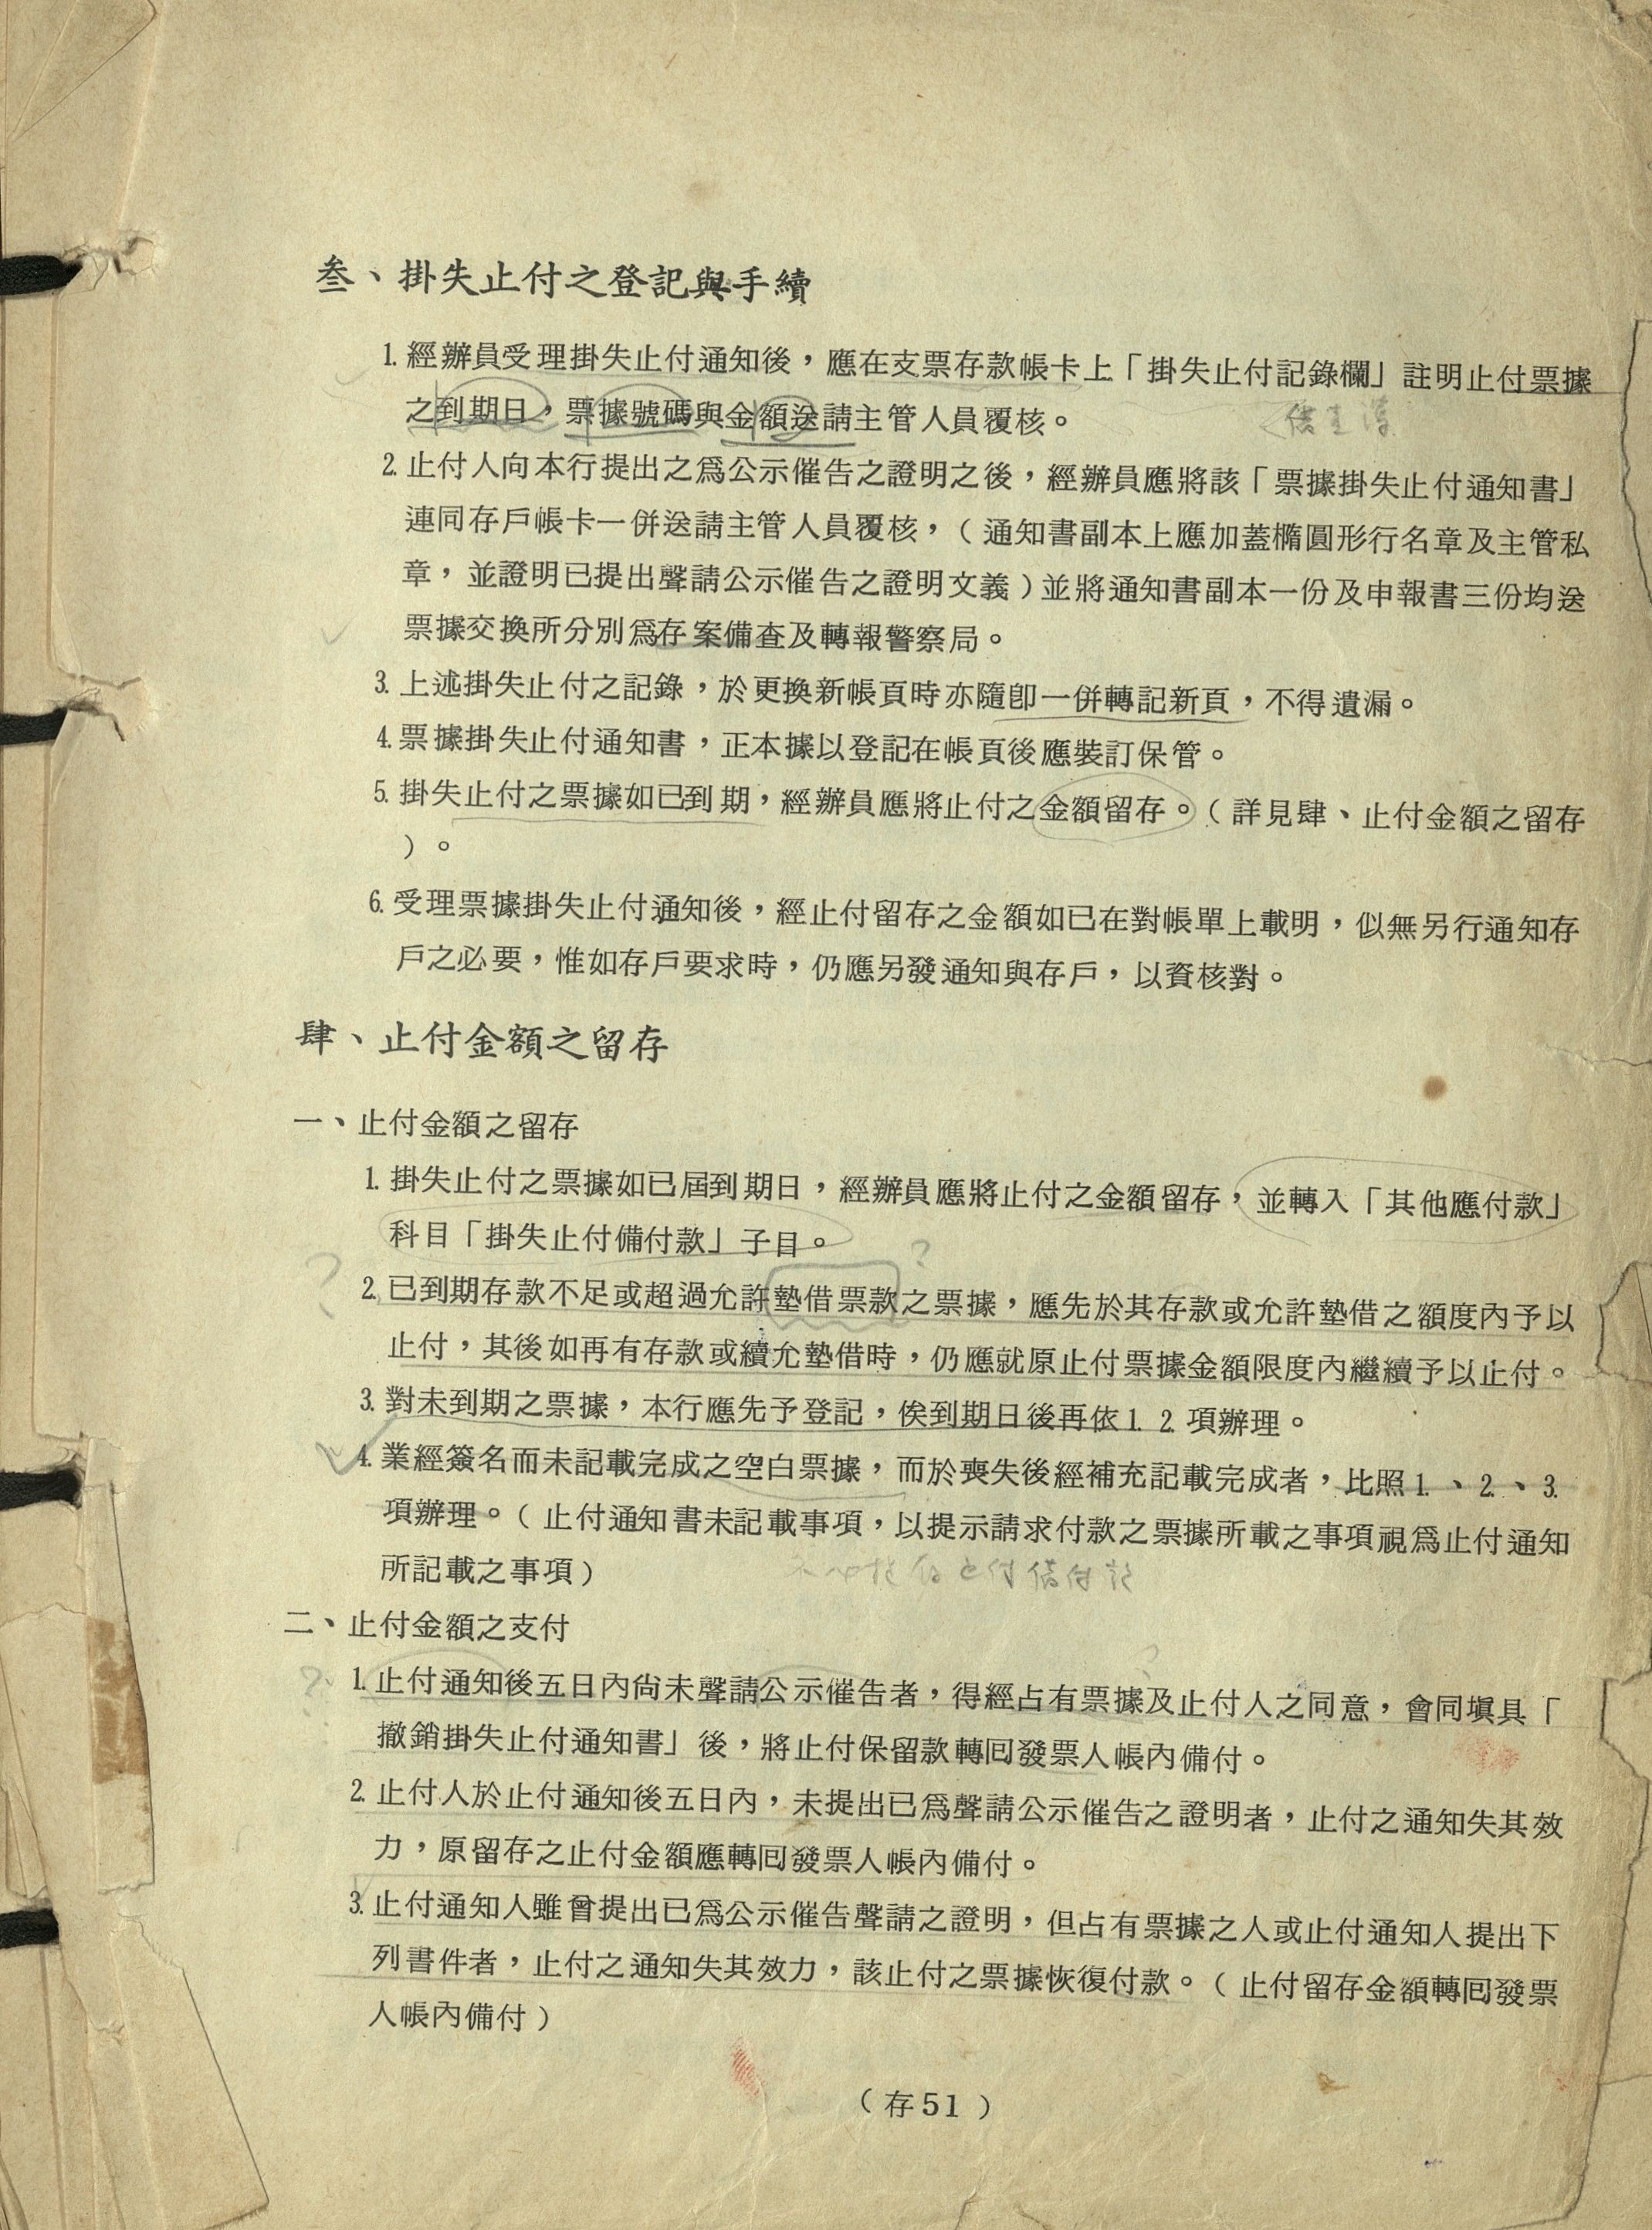 叁、掛失止付之登記與手續
1. 經辦員受理掛失止付通知後，應在支票存款帳卡上「掛失止付記錄欄」註明止付票據
之到期日，票據號碼與金額送請主管人員覆核。
2. 止付人向本行提出之爲公示催告之證明之後，經辦員應將該「票據掛失止付通知書」
連同存戶帳卡一併送請主管人員覆核，（通知書副本上應加蓋橢圓形行名章及主管私
章，並證明已提出聲請公示催告之證明文義）並將通知書副本一份及申報書三份均送
票據交換所分別爲存案備查及轉報警察局。
3. 上述掛失止付之記錄，於更換新帳頁時亦隨卽一併轉記新頁，不得遺漏。
4. 票據掛失止付通知書，正本據以登記在帳頁後應裝訂保管。
5. 掛失止付之票據如已到期，經辦員應將止付之金額留存。（詳見肆、止付金額之留存
）。
6. 受理票據掛失止付通知後，經止付留存之金額如已在對帳單上載明，似無另行通知存
戶之必要，惟如存戶要求時，仍應另發通知與存戶，以資核對。
肆、止付金額之留存
一、止付金額之留存
1. 掛失止付之票據如已屆到期日，經辦員應將止付之金額留存，並轉入「其他應付款」
科目「掛失止付備付款」子目。
?
?
2. 已到期存款不足或超過允許墊借票款之票據，應先於其存款或允許墊借之額度內予以
止付，其後如再有存款或續允墊借時，仍應就原止付票據金額限度內繼續予以止付。
3. 對未到期之票據，本行應先予登記，俟到期日後再依1. 2. 項辦理。
4. 業經簽名而未記載完成之空白票據，而於喪失後經補充記載完成者，比照1. 、2. 、3.
項辦理。（止付通知書未記載事項，以提示請求付款之票據所載之事項視爲止付通知
所記載之事項）
二、止付金額之支付
?
1. 止付通知後五日內尙未聲請公示催告者，得經占有票據及止付人之同意，會同塡具「
撤銷掛失止付通知書」後，將止付保留款轉囘發票人帳內備付。
2. 止付人於止付通知後五日內，未提出已爲聲請公示催告之證明者，止付之通知失其效
力，原留存之止付金額應轉囘發票人帳內備付。
3. 止付通知人雖曾提出已爲公示催告聲請之證明，但占有票據之人或止付通知人提出下
列書件者，止付之通知失其效力，該止付之票據恢復付款。（止付留存金額轉囘發票
人帳內備付）
（存51）